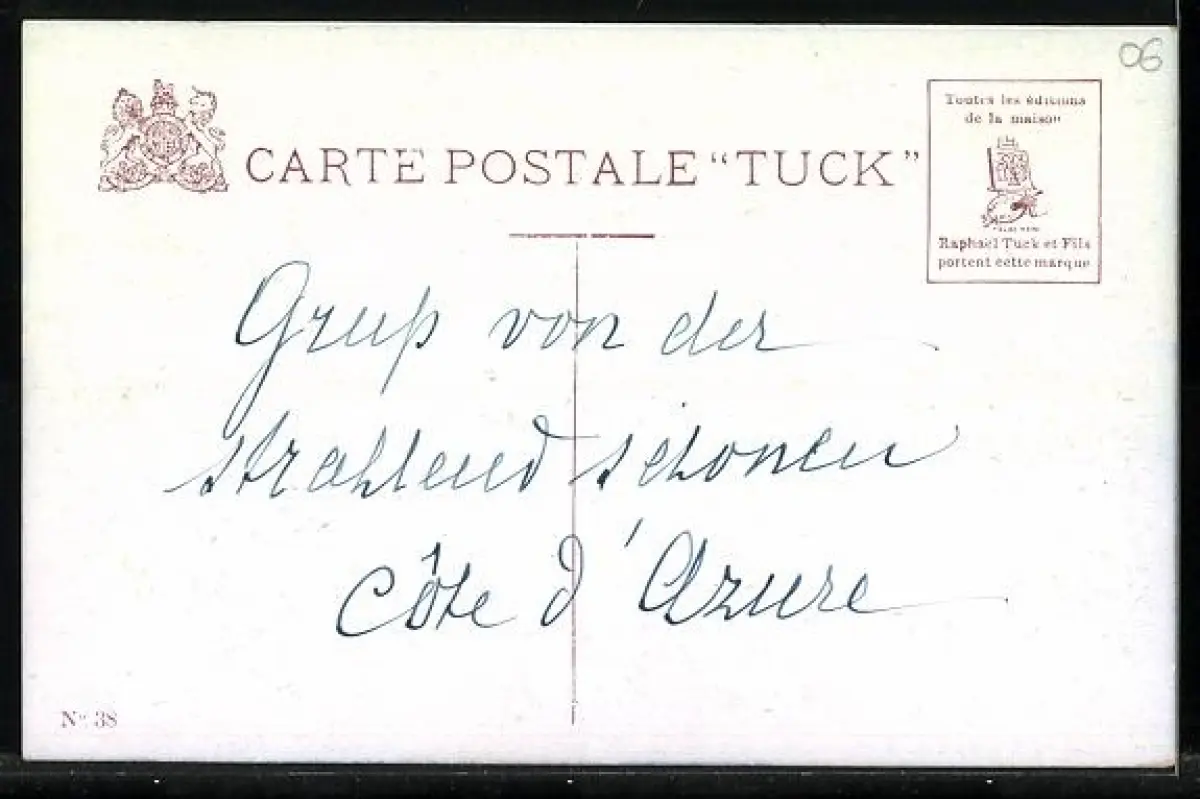 06
CARTE POSTALE “TUCK”
Toutes les éditions
de la maison
Raphael Tuck et Fils
portent cette marque
Gruß von der
strahlend schonen
Côte d'Azure
No. 38